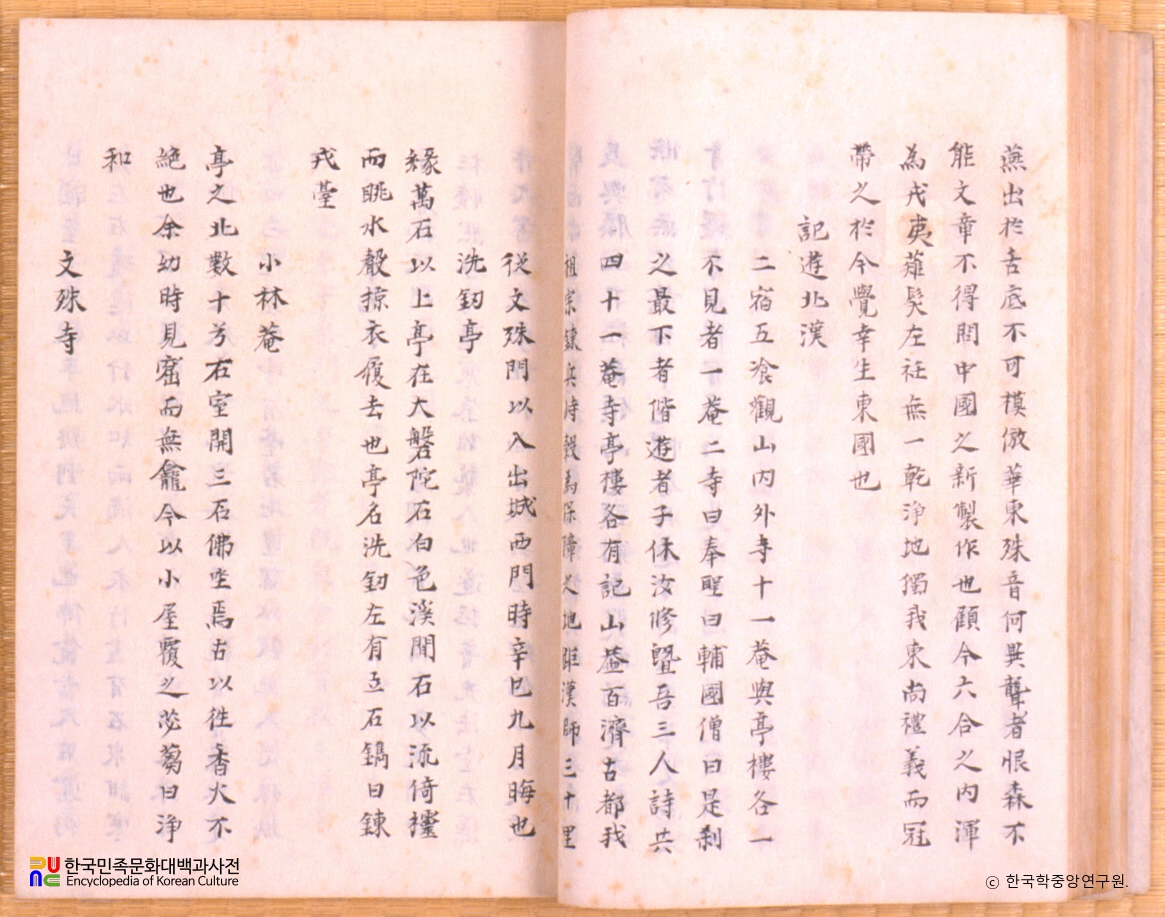 燕出於舌底不可模倣華東殊音何異聾者恨森不
能文章不得閱中國之新製作也顧今六合之內渾
為戎夷薙髮左衽無一乾淨地獨我東尚禮義而冠
帶之於今覺幸生東國也
記遊北漢
二宿五飡觀山內外寺十一菴與亭樓各一
不見者一菴二寺曰奉聖曰輔國僧曰是刹
之最下者偕遊者子休汝修曁吾三人詩共
四十一菴寺亭樓各有記山盖百濟古都我
祖宗鍊兵峙穀為保障之地距漢師三十里
從文殊門以入出城西門時辛巳九月晦也
洗釰亭
緣萬石以上亭在大磐陀石白色溪閒石以流倚檻
而眺水聲掠衣履去也亭名洗釰左有立石鐫曰鍊
戎臺
小林菴
亭之北數十弓石室開三石佛坐焉古以徃香火不
絶也余幼時見窟而無龕今以小屋覆之苾蒭曰淨
和
文殊寺
한국민족문화대백과사전
Encyclopedia of Korean Culture
© 한국학중앙연구원.